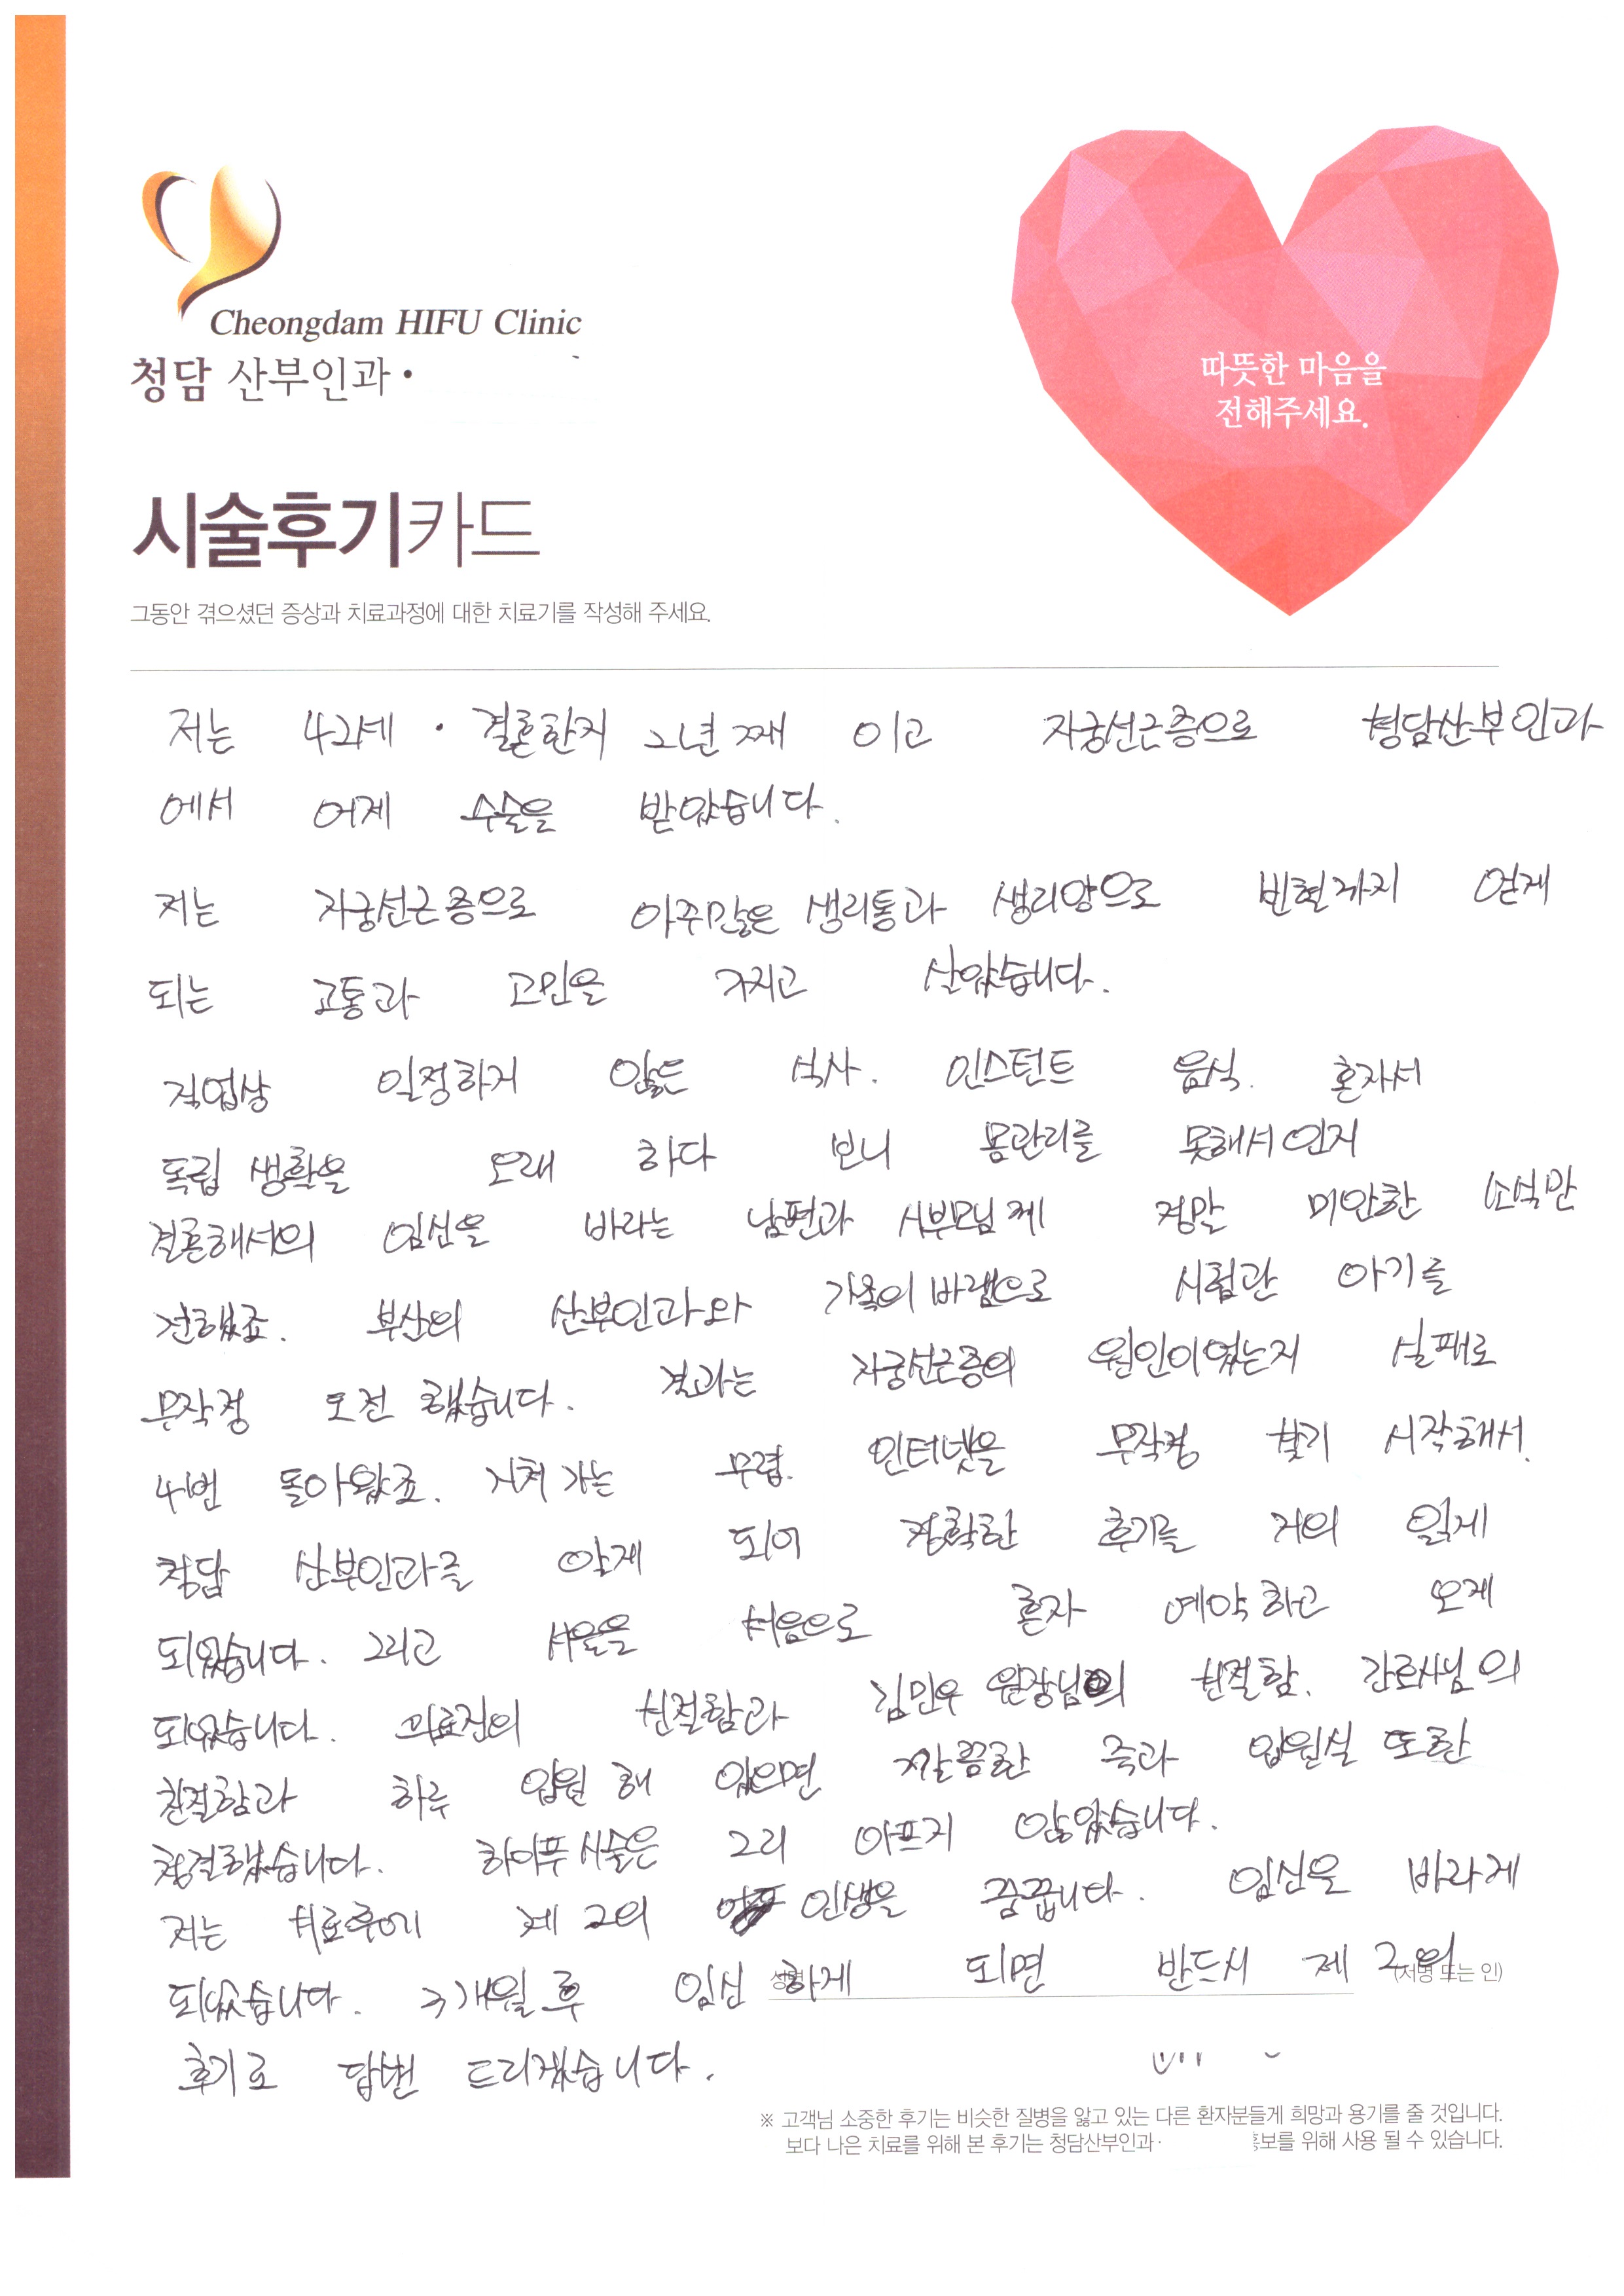 Cheongdam HIFU Clinic
청담 산부인과·
따뜻한 마음을
전해주세요.
시술후기카드
그동안 겪으셨던 증상과 치료과정에 대한 치료기를 작성해 주세요.
저는 42세 · 결혼한지 2년째 이고 자궁선근증으로 청담산부인과
에서 어제 수술을 받았습니다.
저는 자궁선근증으로 아주많은 생리통과 생리양으로 빈혈까지 얻게
되는 고통과 고민을 가지고 살았습니다.
직업상 일정하지 않은 식사. 인스턴트 음식. 혼자서
독립 생활을 오래 하다 보니 몸관리를 못해서인지
결혼해서의 임신을 바라는 남편과 시부모님께 정말 미안한 소식만
전했죠. 부산의 산부인과와 가족의 바램으로 시험관 아기를
무작정 도전 했습니다. 결과는 자궁선근증의 원인이였는지 실패로
4번 돌아왔죠. 지쳐가는 무렵. 인터넷을 무작정 찾기 시작해서.
청담 산부인과를 알게 되어 정확한 후기를 거의 읽게
되었습니다. 그리고 서울을 처음으로 혼자 예약하고 오게
되었습니다. 의료진의 친절함과 김민우 원장님의 친절함. 간호사님의
친절함과 하루 입원 해 있으면 깔끔한 죽과 입원실 또한
청결했습니다. 하이푸시술은 그리 아프지 않았습니다.
저는 치료후에 제 2의 인생을 꿈꿉니다. 임신을 바라게
되었습니다. 3개월 후 임신 하게 되면 반드시 제 2의
(서명 또는 인)
후기로 답변 드리겠습니다.
※ 고객님 소중한 후기는 비슷한 질병을 앓고 있는 다른 환자분들게 희망과 용기를 줄 것입니다.
보다 나은 치료를 위해 본 후기는 청담산부인과· 홍보를 위해 사용 될 수 있습니다.